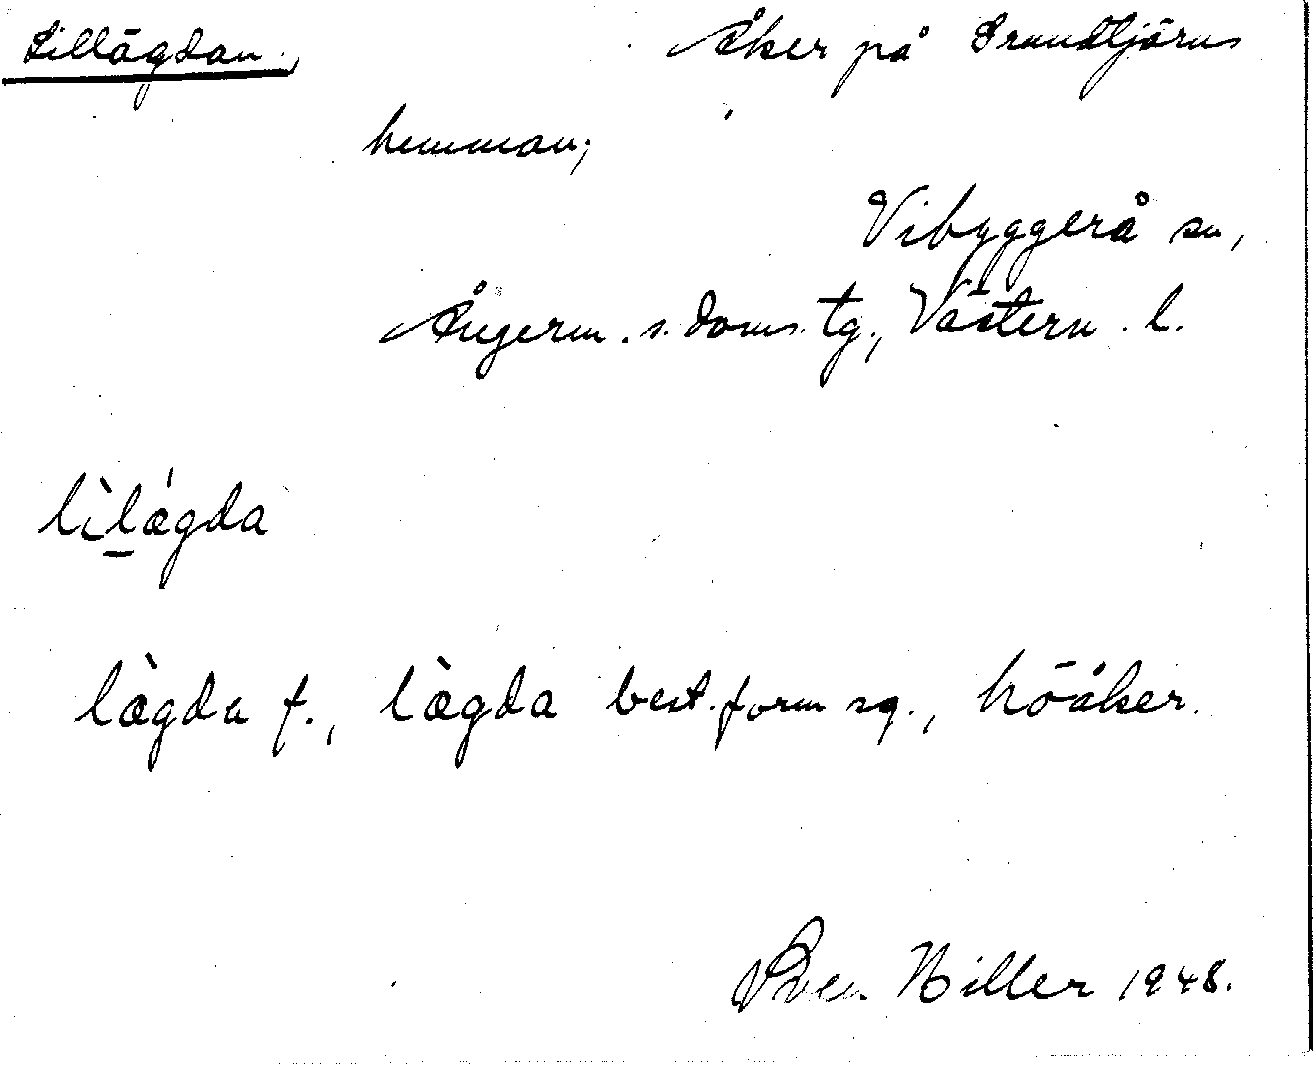 Lillägdan, Åker på Grundtjärns
hemman;
Vibyggerå sn,
Ångerm. s. doms. tg., Västern. l.
lìlǽgda
lægda f., lægda best. form sg., höåker.
Sven Hiller 1948.